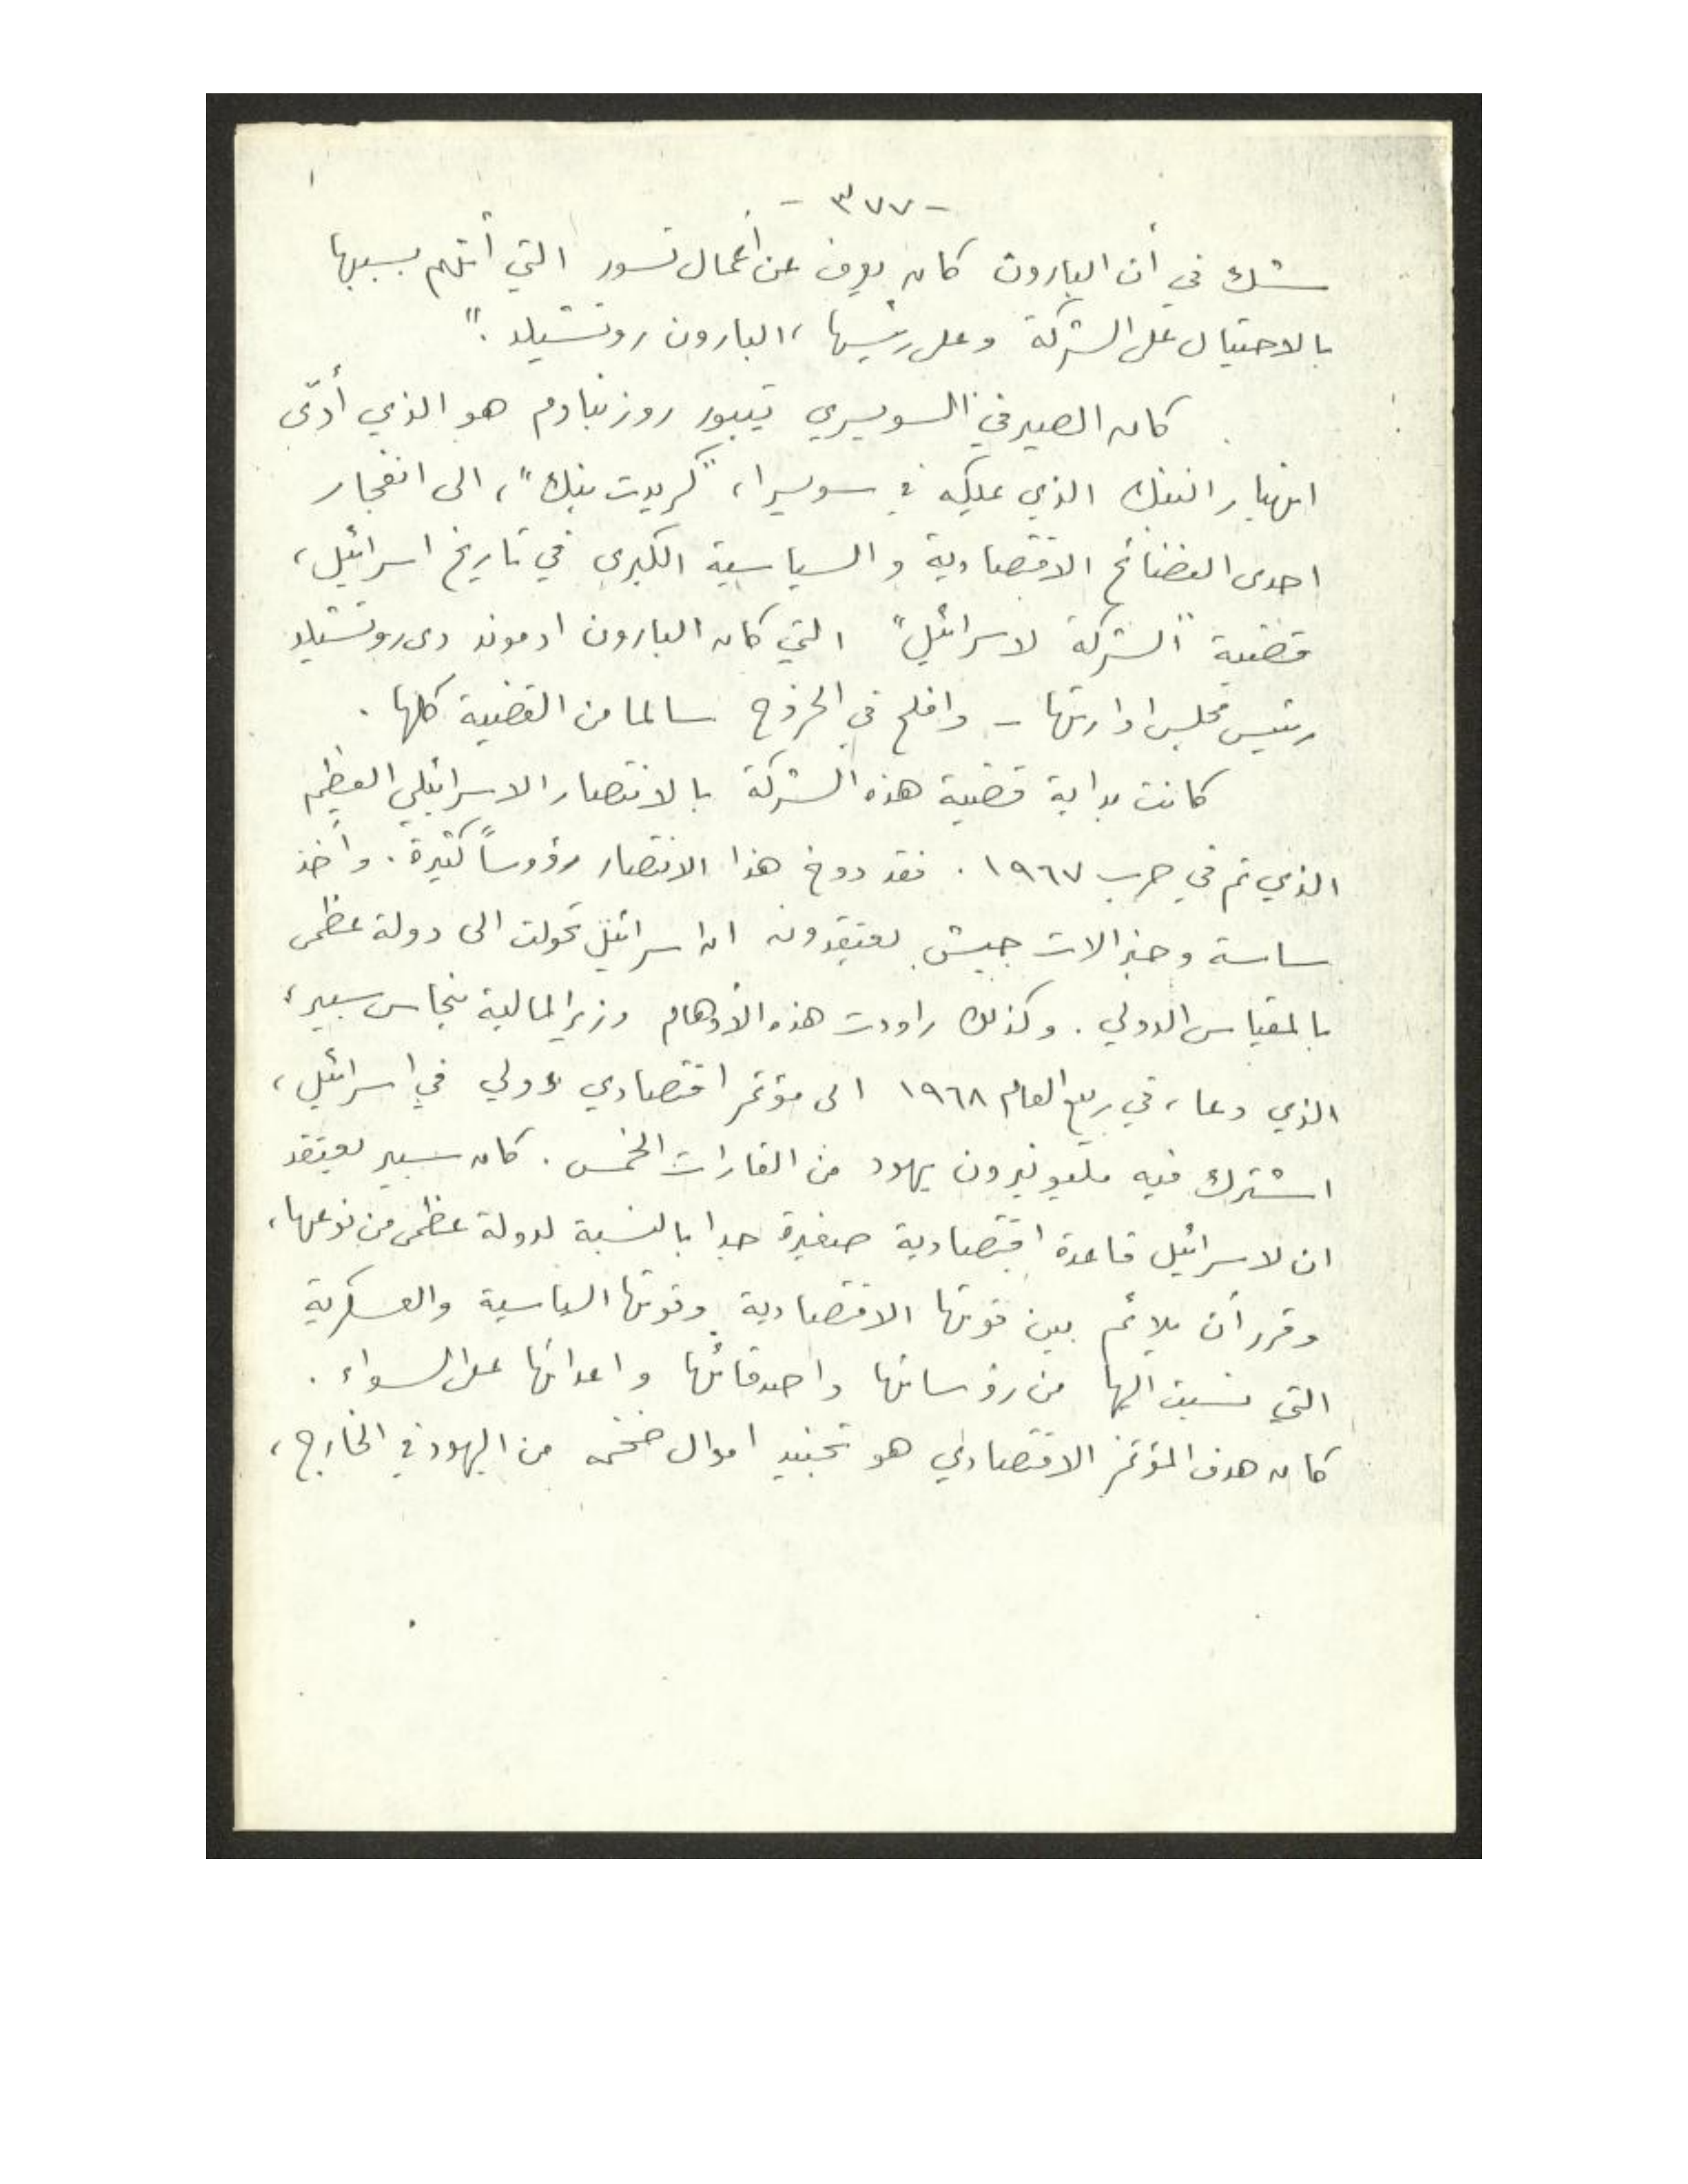 - ٣٧٧ -
شك في أن البارون كان يعرف عن أعمال تسور التي أتهم بسببها
بالاحتيال على الشركة وعلى رئيسها، البارون روتشيلد."
كان الصيرفي السويسري تيبور روزنباوم هو الذي أدّى
انهيار البنك الذي يملكه في سويسرا، "كريدت بنك"، الى انفجار
احدى الفضائح الاقتصادية والسياسية الكبرى في تاريخ اسرائيل،
قضية "الشركة لاسرائيل" التي كان البارون ادموند دي روتشيلد
رئيس مجلس ادارتها - وافلح في الخروج سالما من القضية كلها.
كانت بداية قضية هذه الشركة بالانتصار الاسرائيلي العظيم
الذي تم في حرب ١٩٦٧. فقد دوخ هذا الانتصار رؤوساً كثيرة. وأخذ
ساسة وجنرالات جيش يعتقدون ان اسرائيل تحولت الى دولة عظمى
بالمقياس الدولي. وكذلك راودت هذه الأوهام وزير المالية بنحاس سبير،
الذي دعا، في ربيع العام ١٩٦٨ الى مؤتمر اقتصادي دولي في اسرائيل،
اشترك فيه مليونيرون يهود من القارات الخمس. كان سبير يعتقد
ان لاسرائيل قاعدة اقتصادية صغيرة جدا بالنسبة لدولة عظمى من نوعها،
وقرر أن يلائم بين قوتها الاقتصادية وقوتها السياسية والعسكرية
التي نسبت اليها من رؤسائها واصدقائها واعدائها على السواء.
كان هدف المؤتمر الاقتصادي هو تجنيد اموال ضخمه من اليهود في الخارج،